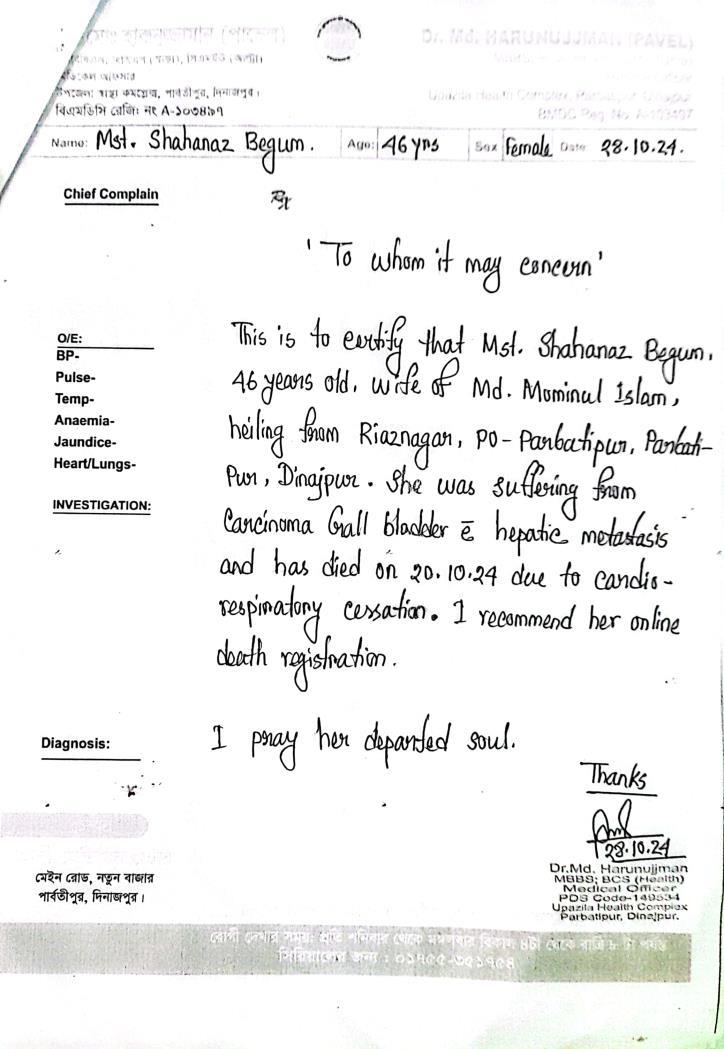 Dr. Md. HARUNUJJMAN (PAVEL)
উপজেলা স্বাস্থ্য কমপ্লেক্স, পার্বতীপুর, দিনাজপুর।
Upazila Health Complex, Parbatipur, Dinajpur
বিএমডিসি রেজি: নং A-১০৩৪৯৭
BMDC Reg. No. A-103497
Name: Mst. Shahanaz Begum. Age: 46 yrs Sex Female Date 28.10.24.
Chief Complain
Rx
'To whom it may concern'
This is to certify that Mst. Shahanaz Begum,
46 years old, wife of Md. Mominul Islam,
heiling from Riaznagar, PO-Parbatipur, Parbati-
Pur, Dinajpur. She was suffering from
Carcinoma Gall bladder c̄ hepatic metastasis
and has died on 20.10.24 due to cardio-
respiratory cessation. I recommend her online
death registration.
I pray her departed soul.
O/E:
BP-
Pulse-
Temp-
Anaemia-
Jaundice-
Heart/Lungs-
INVESTIGATION:
Diagnosis:
Thanks
28.10.24
Dr.Md. Harunujjman
MBBS; BCS (Health)
Medical Officer
PDS Code-149534
Upazila Health Complex
Parbatipur, Dinajpur.
মেইন রোড, নতুন বাজার
পার্বতীপুর, দিনাজপুর।
রোগী দেখার সময়: প্রতি শনিবার থেকে মঙ্গলবার বিকাল ৪টা থেকে রাত্রি ৮ টা পর্যন্ত
সিরিয়ালের জন্য : ০১৭৫৫-৩৫১৭৫৪